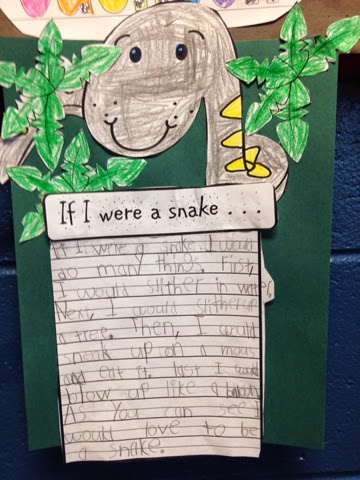 If I were a snake . . .
If I were a snake I would
do many things. First,
I would slither in water,
Next, I would slither up
a tree. Then, I would
sneak up on a mous
and eat it. last I would
blow up like a
As you can see I
would love to be
a snake.